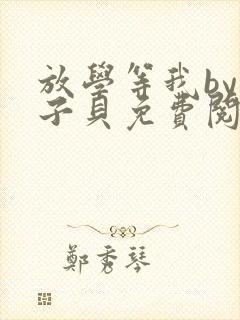 放學等我by
子貝免費閱
鄭秀琴